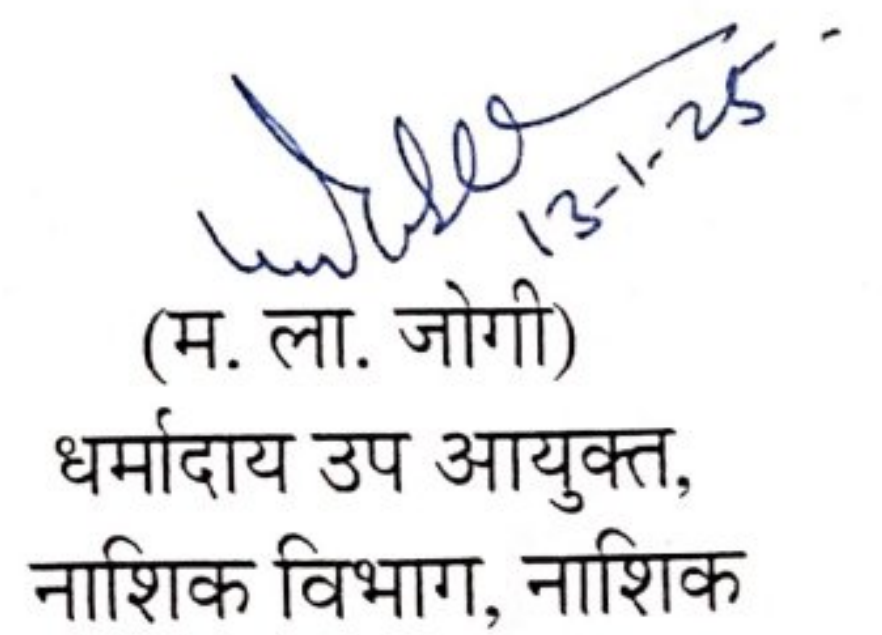 13-1-25
(म. ला. जोगी)
धर्मादाय उप आयुक्त,
नाशिक विभाग, नाशिक